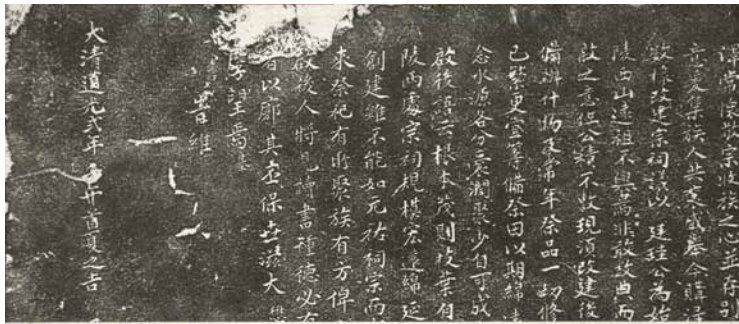 渾嘗懷敬宗收族之心並存別
意爰集族人共定盛舉今購得
數椽改建宗祠議以廷珪公為始
陵西山遠祖不與焉非敢數典而
故之意但公積不敷現須改建後
備辦什物及常年祭品一切修
已祭更宜籌備祭田以期綿遠
念水源各分裒潤聚少自可成
啟後語云根本茂則枝葉自
陵兩處宗祠規模宏遠綿延
創建雖不能如元祐祠宗而
來祭祀有所聚族有方俾
啟後人將見詩書種德必有
者以廓其宏保世滋大
厚望焉
晉維
大清道光弍年 首夏之吉